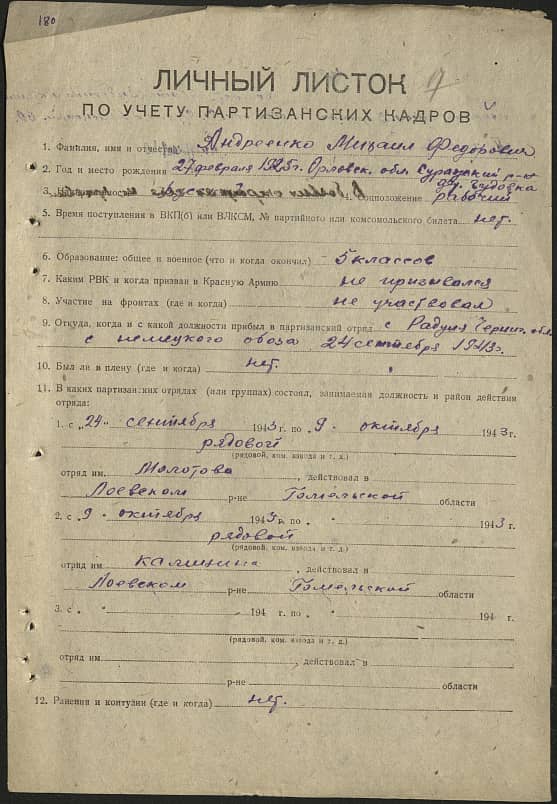 180
ЛИЧНЫЙ ЛИСТОК
ПО УЧЕТУ ПАРТИЗАНСКИХ КАДРОВ
1. Фамилия, имя и отчество Андреенко Михаил Федорович
2. Год и место рождения 27 февраля 1925 г. Орловск. обл. Суражский р-н
дер.
3. 4. Соцположение рабочий
5. Время поступления в ВКП(б) или ВЛКСМ, № партийного или комсомольского билета нет.
6. Образование: общее и военное (что и когда окончил) 5 классов
7. Каким РВК и когда призван в Красную Армию не призывался
8. Участие на фронтах (где и когда) не участвовал
9. Откуда, когда и с какой должности прибыл в партизанский отряд с Радуля Черниг. обл.
с немецкого обоза 24 сентября 1943 г.
10. Был ли в плену (где и когда) нет.
11. В каких партизанских отрядах (или группах) состоял, занимаемая должность и район действия
отряда:
1. с „24" сентября 1943 г. по „9. октября 1943 г.
рядовой
(рядовой, ком. взвода и т. д.)
отряд им. Молотова, действовал в
Лоевском р-не Гомельской области
2. с „9. октября 1943 г. по „ 1943 г.
рядовой
(рядовой, ком. взвода и т. д.)
отряд им. Калинина, действовал в
Лоевском р-не Гомельской области
3. с „ " 194 г. по „ 194 г.
(рядовой, ком. взвода и т. д.)
отряд им , действовал в
р-не области
12. Ранения и контузии (где и когда) нет.